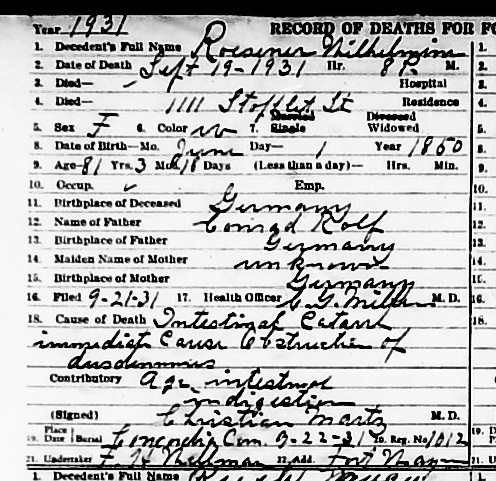 Year 1931 RECORD OF DEATHS FOR FO
1. Decedent's Full Name Roesener Wilhelmina 1.
2. Date of Death Sept 19-1931 Hr. 8 P. M. 2.
3. Died— Hospital 3.
4. Died— 1111 Stophlet St Residence 4.
Married Divorced
5. Sex F 6. Color w 7. Single Widowed 5.
8. Date of Birth—Mo. June Day— 1 Year 1850 8.
9. Age 81 Yrs. 3 Mo. 18 Days (Less than a day)— Hrs. Min. 9.
10. Occup. Emp. 10.
11. Birthplace of Deceased Germany 11.
12. Name of Father Conrad Rolf 12.
13. Birthplace of Father Germany 13.
14. Maiden Name of Mother unknown 14.
15. Birthplace of Mother Germany 15.
16. Filed 9-21-31 17. Health Officer M. D. 16.
18. Cause of Death Intestinal Catarrh 18.
immediate Cause Obstruction of
Contributory Age, intestinal
indigestion
(Signed) Christian Martz M. D.
19. Place Date Burial Concordia Cem. 9-22-31 20. Reg. No. 1012 19.
21. Undertaker 22. Add. Fort Wayne 21.
1. Decedent's Full Name 1.